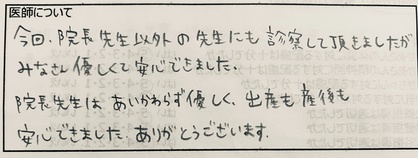 医師について
今回、院長先生以外の先生にも診察して頂きましたが
みなさん優しくて安心できました。
院長先生は あいかわらず優しく、出産も産後も
安心できました。ありがとうございます。